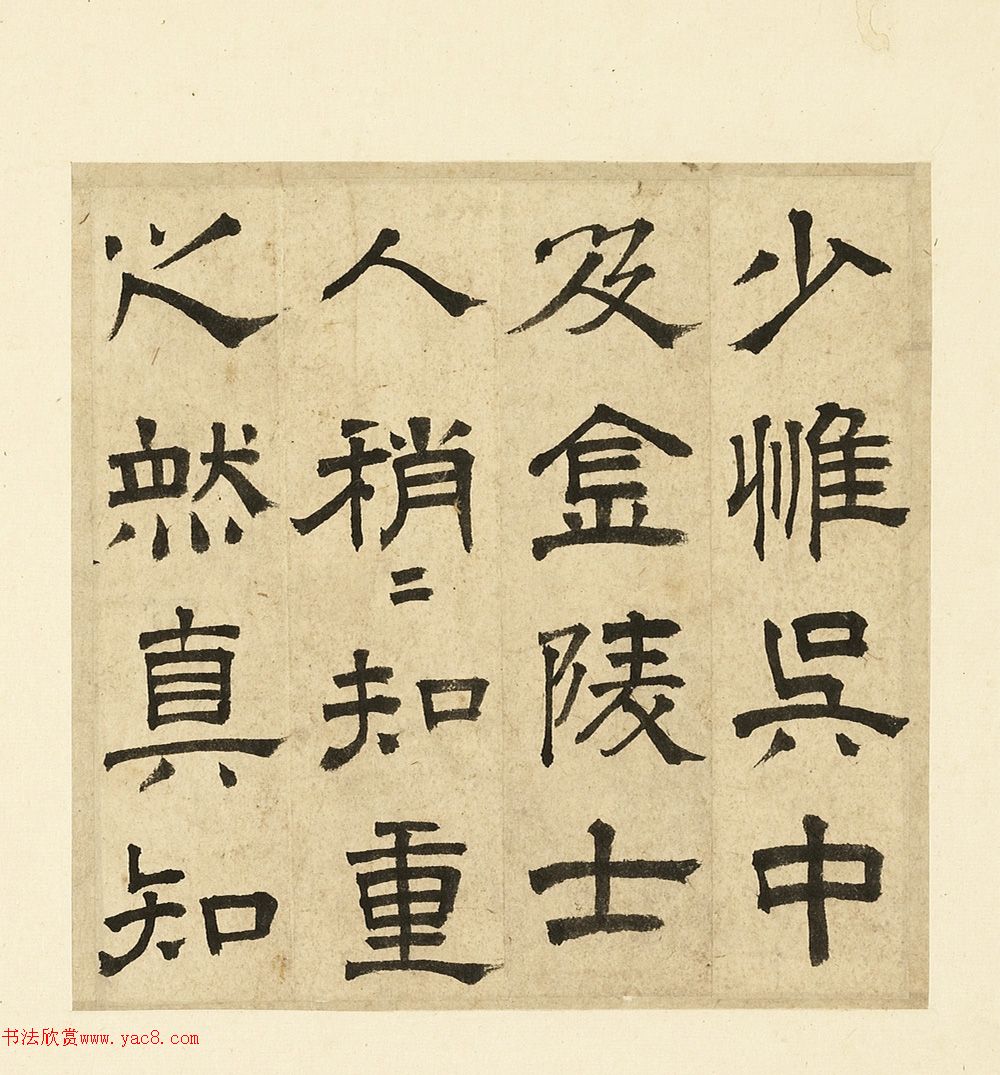 少惟吳中
及金陵士
人稍二知重
之然真知
书法欣赏www.yac8.com